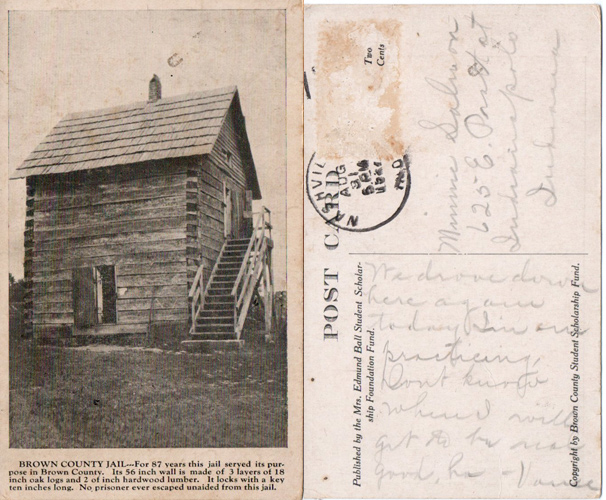 BROWN COUNTY JAIL---For 87 years this jail served its pur-
pose in Brown County. Its 56 inch wall is made of 3 layers of 18
inch oak logs and 2 of inch hardwood lumber. It locks with a key
ten inches long. No prisoner ever escaped unaided from this jail.
Two
Cents
NASHVIL
AUG
31
5 PM
POST CARD
Published by the Mrs. Edmund Ball Student Scholar-
ship Foundation Fund.
Copyright by Brown County Student Scholarship Fund.
Minnie
625 E.
Indianapolis
Indiana
We drove down
here again
today
practicing,
Dont know
when I will
get to be
good, ha